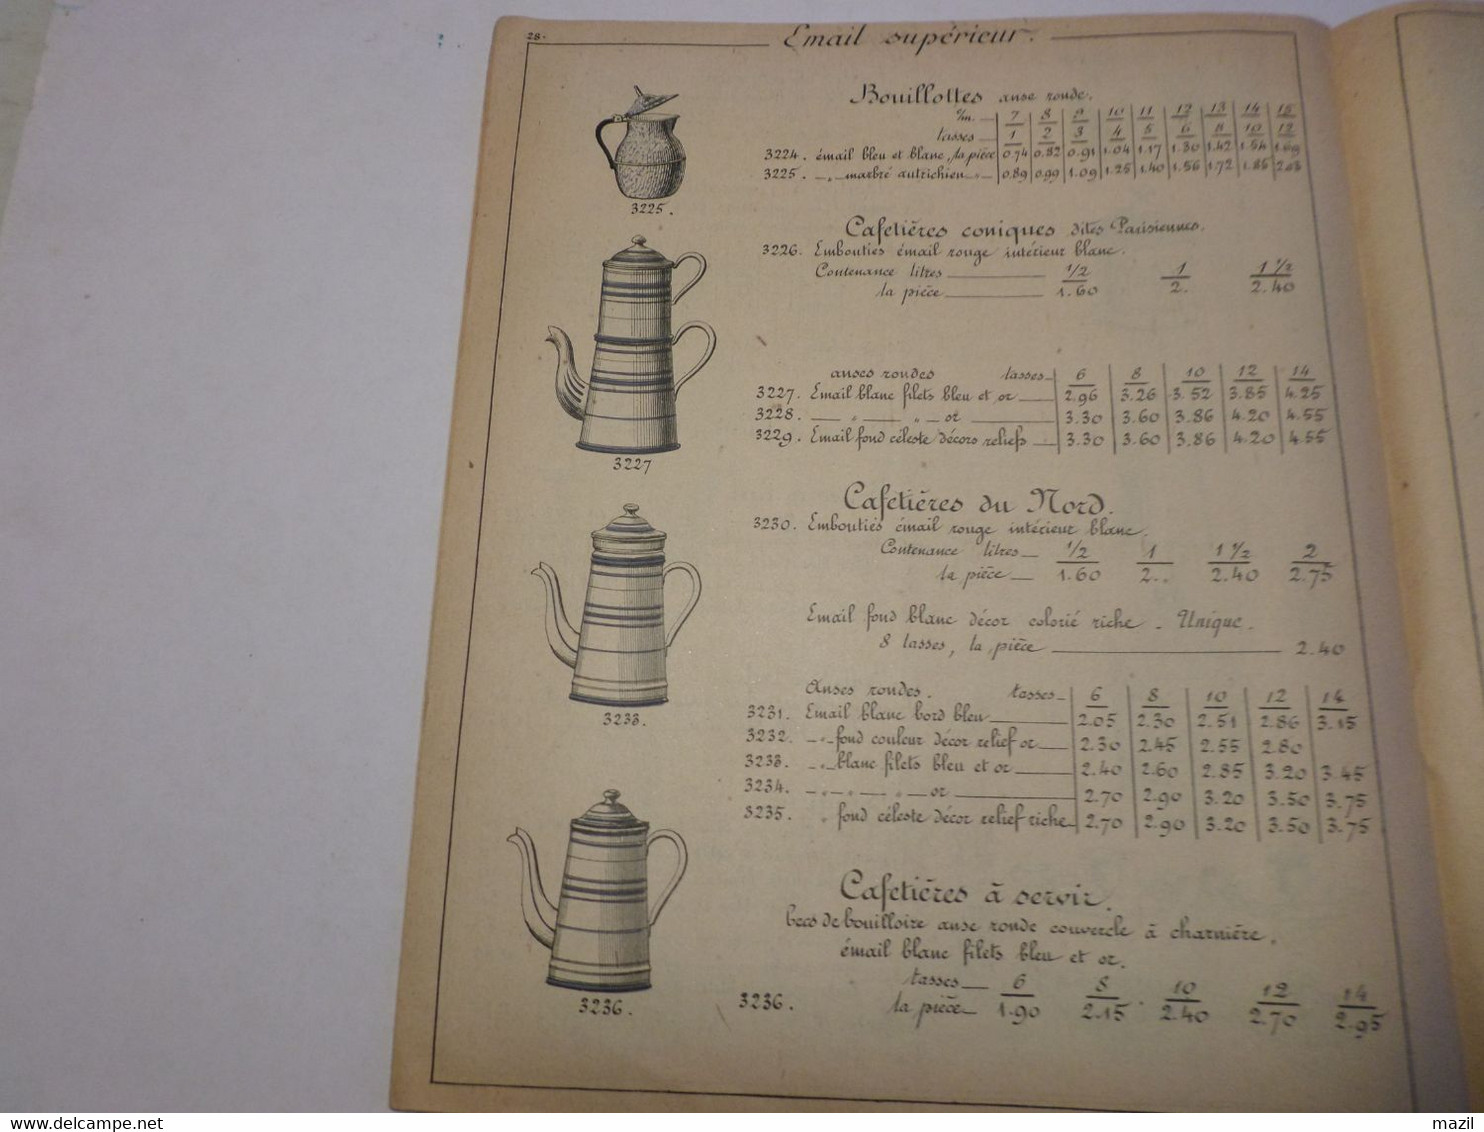 28.
Email supérieur.
Bouillottes anse ronde.
c/m. 7 8 9 10 11 12 13 14 15
tasses 1 2 3 4 5 6 8 10 12
3224. émail bleu et blanc, la pièce 0.74 0.82 0.91 1.04 1.17 1.30 1.42 1.54 1.69
3225. —„— marbré autrichien —„— 0.89 0.99 1.09 1.25 1.40 1.56 1.72 1.85 2.03
3225.
Cafetières coniques dites Parisiennes.
3226. Emboutiés émail rouge intérieur blanc.
Contenance litres 1/2 1 1 1/2
la pièce 1.60 2. 2.40
anses rondes tasses 6 8 10 12 14
3227. Email blanc filets bleu et or 2.96 3.26 3.52 3.85 4.25
3228. — „ — „ — or 3.30 3.60 3.86 4.20 4.55
3229. Email fond céleste décors reliefs 3.30 3.60 3.86 4.20 4.55
3227
Cafetières du Nord.
3230. Emboutiés émail rouge intérieur blanc.
Contenance litres 1/2 1 1 1/2 2
la pièce 1.60 2.. 2.40 2.75
Email fond blanc décor colorié riche - Unique.
8 tasses, la pièce 2.40
Anses rondes. tasses 6 8 10 12 14
3231. Email blanc bord bleu 2.05 2.30 2.51 2.86 3.15
3232. —„— fond couleur décor relief or 2.30 2.45 2.55 2.80
3233. —„— blanc filets bleu et or 2.40 2.60 2.85 3.20 3.45
3234. —„—„— „ — or 2.70 2.90 3.20 3.50 3.75
3235. „ fond céleste décor relief riche 2.70 2.90 3.20 3.50 3.75
3233.
Cafetières à servir.
becs de bouilloire anse ronde couvercle à charnière.
émail blanc filets bleu et or.
tasses 6 8 10 12 14
3236. la pièce 1.90 2.15 2.40 2.70 2.95
3236.
delcampe.net
mazil